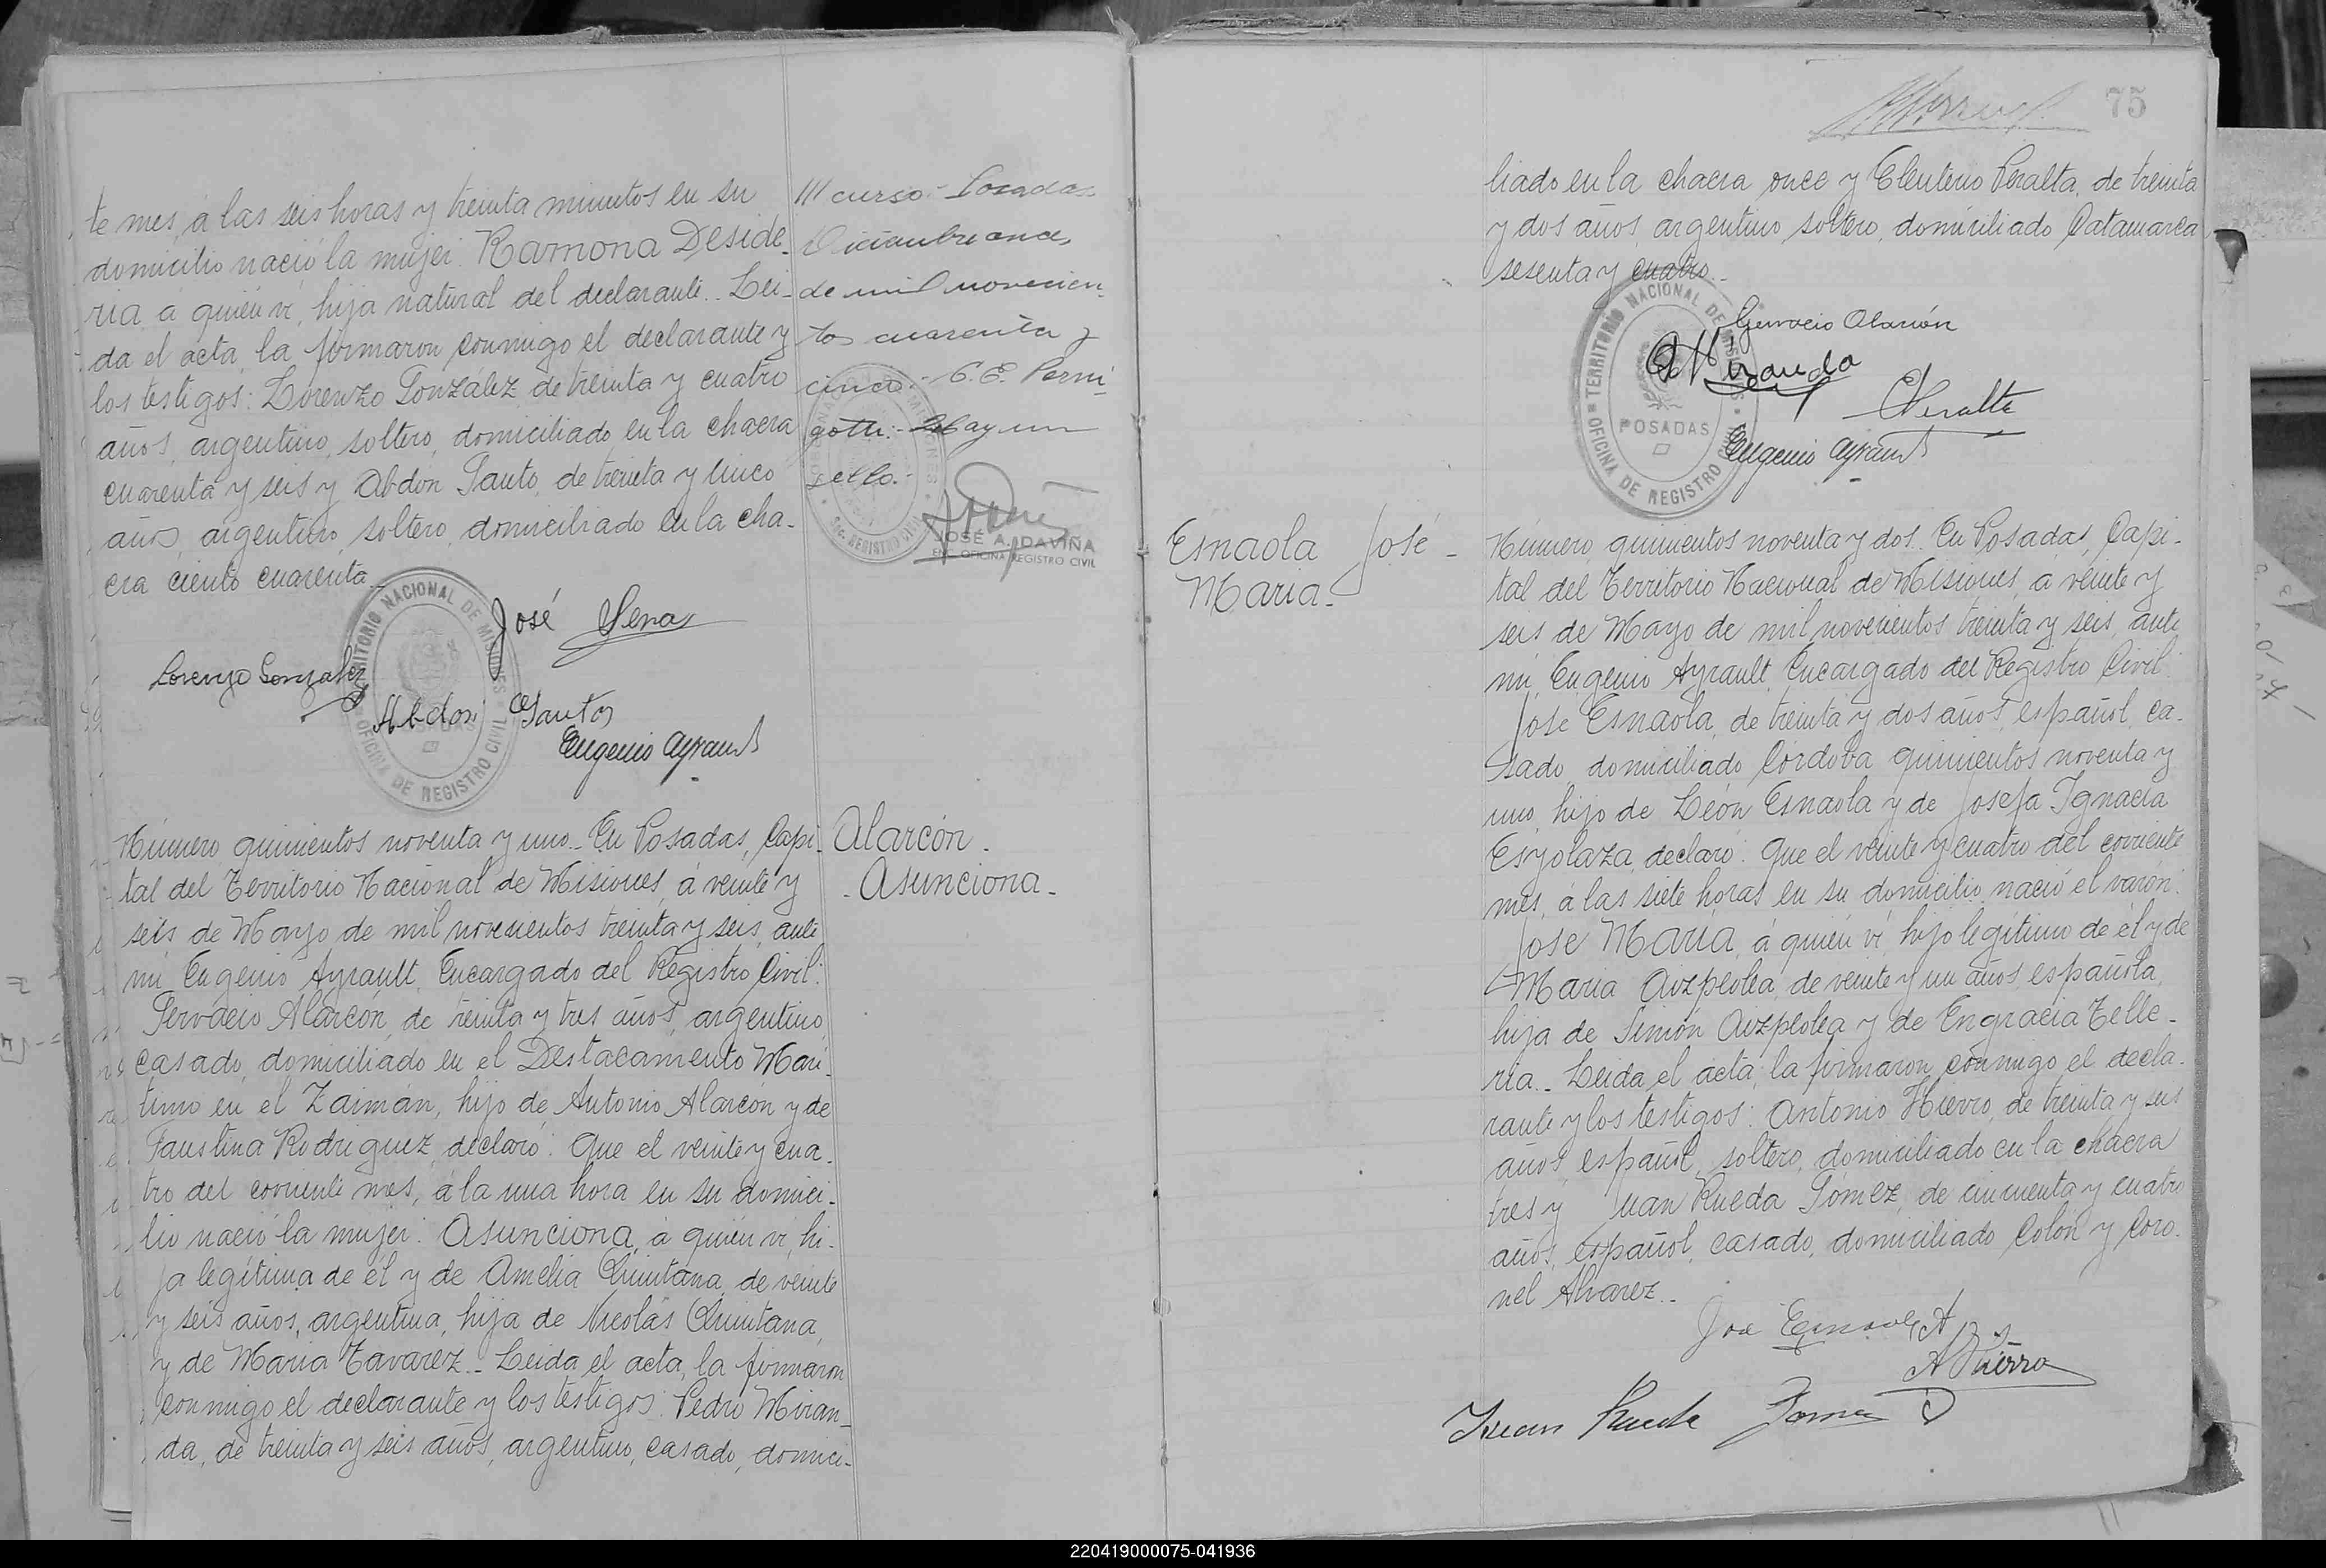 te mes, á las seis horas y treinta minutos en su
domicilio nació la mujer: Ramona Deside-
ria, á quién vi, hija natural del declarante.- Lei-
da el acta, la firmaron conmigo el declarante y
los testigos: Lorenzo González, de treinta y cuatro
años, argentino, soltero, domiciliado en la chacra
cuarenta y seis y Abdón Santo, de treinta y cinco
años, argentino, soltero, domiciliado en la cha-
cra ciento cuarenta.-
José Sena
Lorenzo Gonzalez
Abdon Santos
Eugenio Ayrault
TERRITORIO NACIONAL DE MISIONES
OFICINA DE REGISTRO CIVIL
POSADAS
curso:- Posadas
Diciembre once
de mil novecien-
tos cuarenta y
cinco.- Perni-
gotti:- Hay un
sello.-
JOSÉ A. DAVIÑA
ENC. OFICINA REGISTRO CIVIL
Número quinientos noventa y uno.- En Posadas, Capi-
tal del Territorio Nacional de Misiones, á veinte y
seis de Mayo de mil novecientos treinta y seis, ante
mi Eugenio Ayrault, Encargado del Registro Civil:
Gervacio Alarcón, de treinta y tres años, argentino,
casado, domiciliado en el Destacamento Mari-
timo en el Zaimán, hijo de Antonio Alarcón y de
Faustina Rodriguez, declaró: Que el veinte y cua-
tro del corriente mes, á la una hora en su domici-
lio nació la mujer: Asunciona, á quién vi, hi-
ja legítima de él y de Amelia Quintana, de veinte
y seis años, argentina, hija de Nicolás Quintana,
y de Maria Tavarez.- Leida el acta, la firmaron
conmigo el declarante y los testigos: Pedro Miran-
da, de treinta y seis años, argentino, casado, domici-
Alarcón.
- Asunciona -
75
liado en la chacra once y Eleuterio Peralta, de treinta
y dos años, argentino, soltero, domiciliado Catamarca
sesenta y cuatro.-
Gervacio Alarcón
Miranda
Peralta
Eugenio Ayrault
TERRITORIO NACIONAL DE MISIONES
OFICINA DE REGISTRO CIVIL
POSADAS
Esnaola José -
Maria.-
Número quinientos noventa y dos. En Posadas, Capi-
tal del Territorio Nacional de Misiones, a veinte y
seis de Mayo de mil novecientos treinta y seis, ante
mi, Eugenio Ayrault, Encargado del Registro Civil:
José Esnaola, de treinta y dos años, español, ca-
sado, domiciliado Córdoba quinientos noventa y
uno, hijo de León Esnaola y de Josefa Ignacia
Esyolaza, declaró: Que el veinte y cuatro del corriente
mes, á las siete horas en su domicilio nació el varón:
José Maria, á quién vi, hijo legítimo de él y de
Maria Aizpeolea, de veinte y un años, española,
hija de Simón Aizpeolea y de Engracia Telle-
ria.- Leida el acta, la firmaron conmigo el decla-
rante y los testigos: Antonio Hierro, de treinta y seis
años, español, soltero, domiciliado en la chacra
tres y Juan Rueda Gómez, de cincuenta y cuatro
años, español, casado, domiciliado Colón y Coro-
nel Alvarez.-
José Esnaola
A Hierro
Juan Rueda Gomez
220419000075-041936